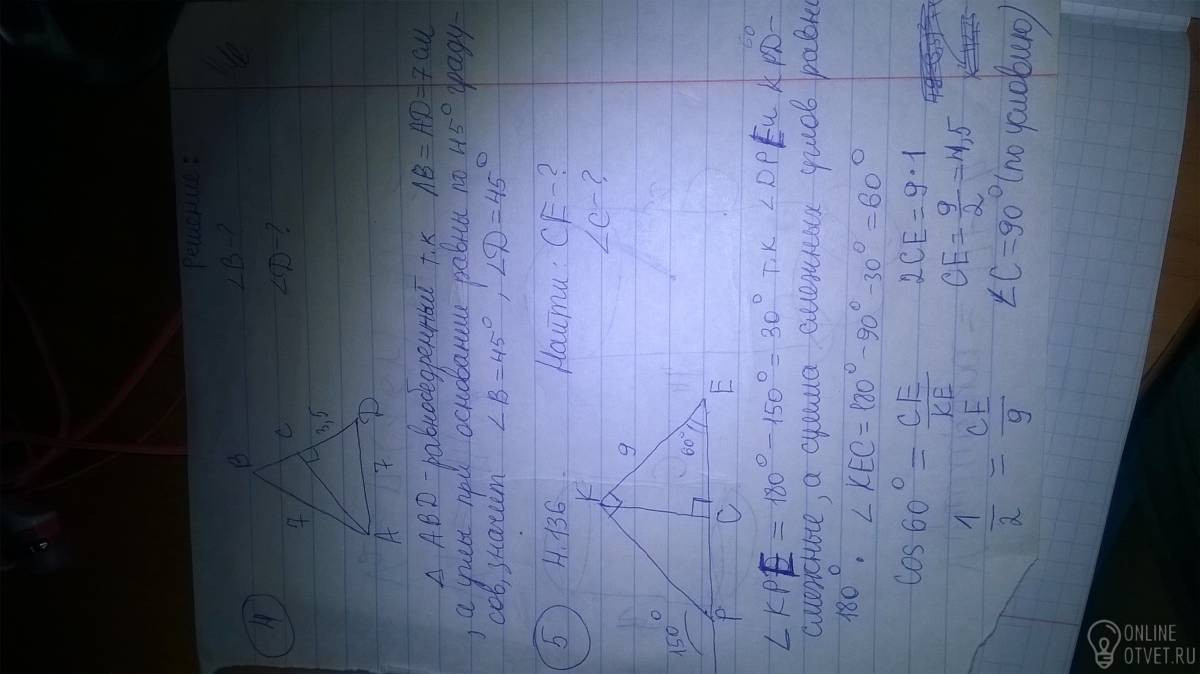 Решение:
4
B
C
D
A
7
3,5
7
∠B-?
∠D-?
△ ABD - равнобедренный т.к AB = AD = 7 см
, а углы при основание равны по 45° граду-
сов, значит ∠B = 45°, ∠D = 45°
5
4.136
Найти: CE-?
∠C-?
K
9
60°
E
C
P
150°
∠KPE = 180° - 150° = 30° т.к ∠DPE и KPD-
смежные, а сумма смежных углов равны
180°. ∠KEC = 180° - 90° - 30° = 60°
cos 60° = CE/KE
2CE = 9 · 1
1/2 = CE/9
CE = 9/2 = 4,5
∠C = 90° (по условию)
ONLINE
OTVET.RU